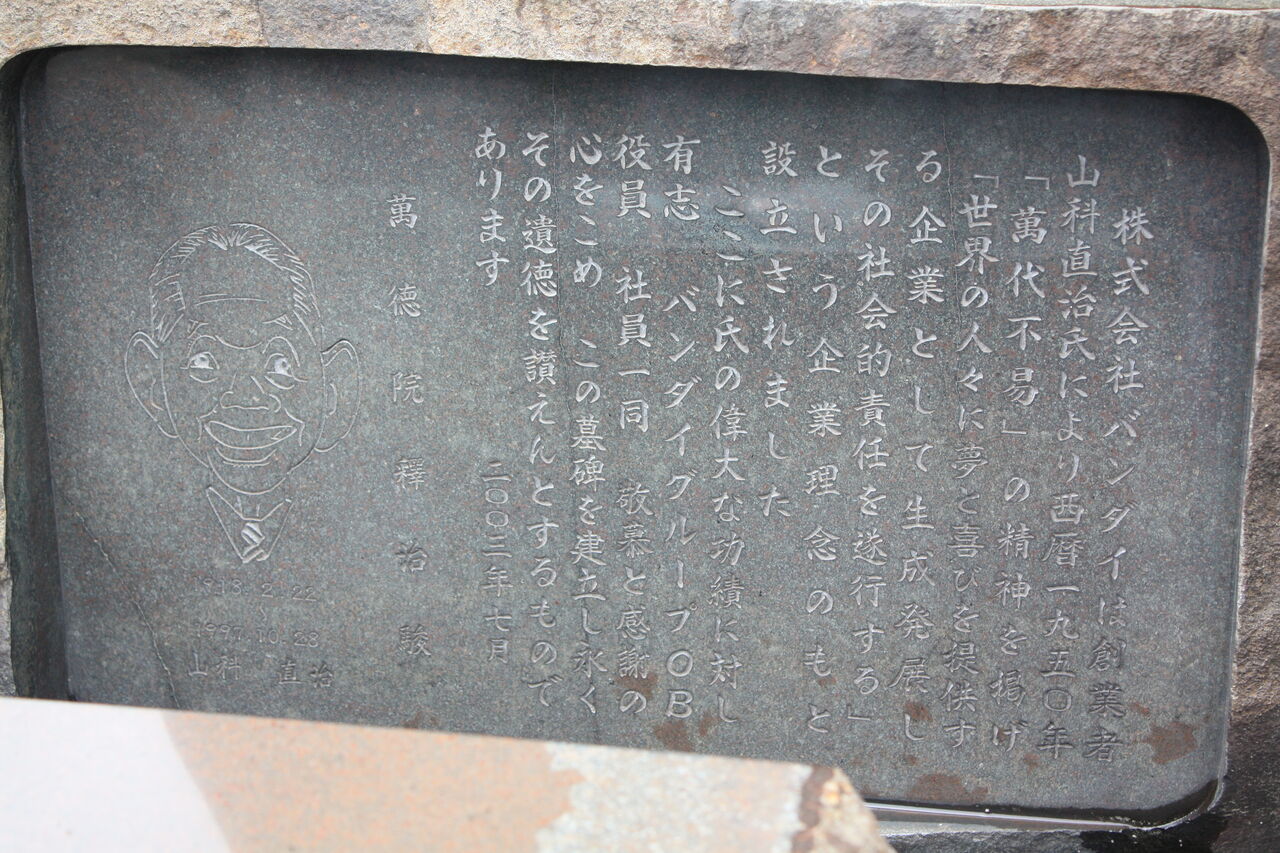 株式会社バンダイは創業者
山科直治氏により西暦一九五〇年
「萬代不易」の精神を掲げ
「世界の人々に夢と喜びを提供す
る企業として生成発展し
その社会的責任を遂行する」
という企業理念のもと
設立されました
ここに氏の偉大な功績に対し
有志 バンダイグループOB
役員 社員一同 敬慕と感謝の
心をこめ この墓碑を建立し永く
その遺徳を讃えんとするもので
あります
二〇〇三年七月
萬徳院釋治駿
1918.2.22
~
1997.10.28
山科 直治